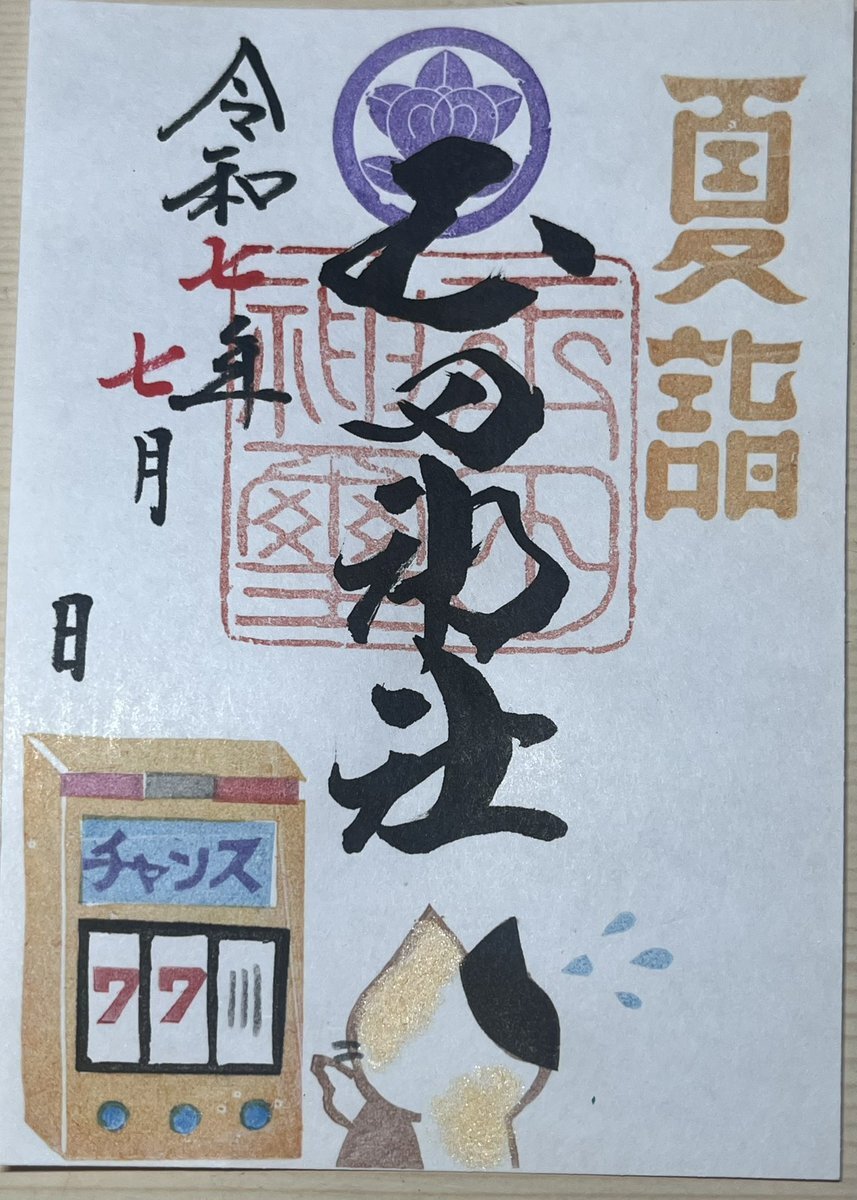 夏詣
玉田神社
令和七年
七月
日
チャンス
77